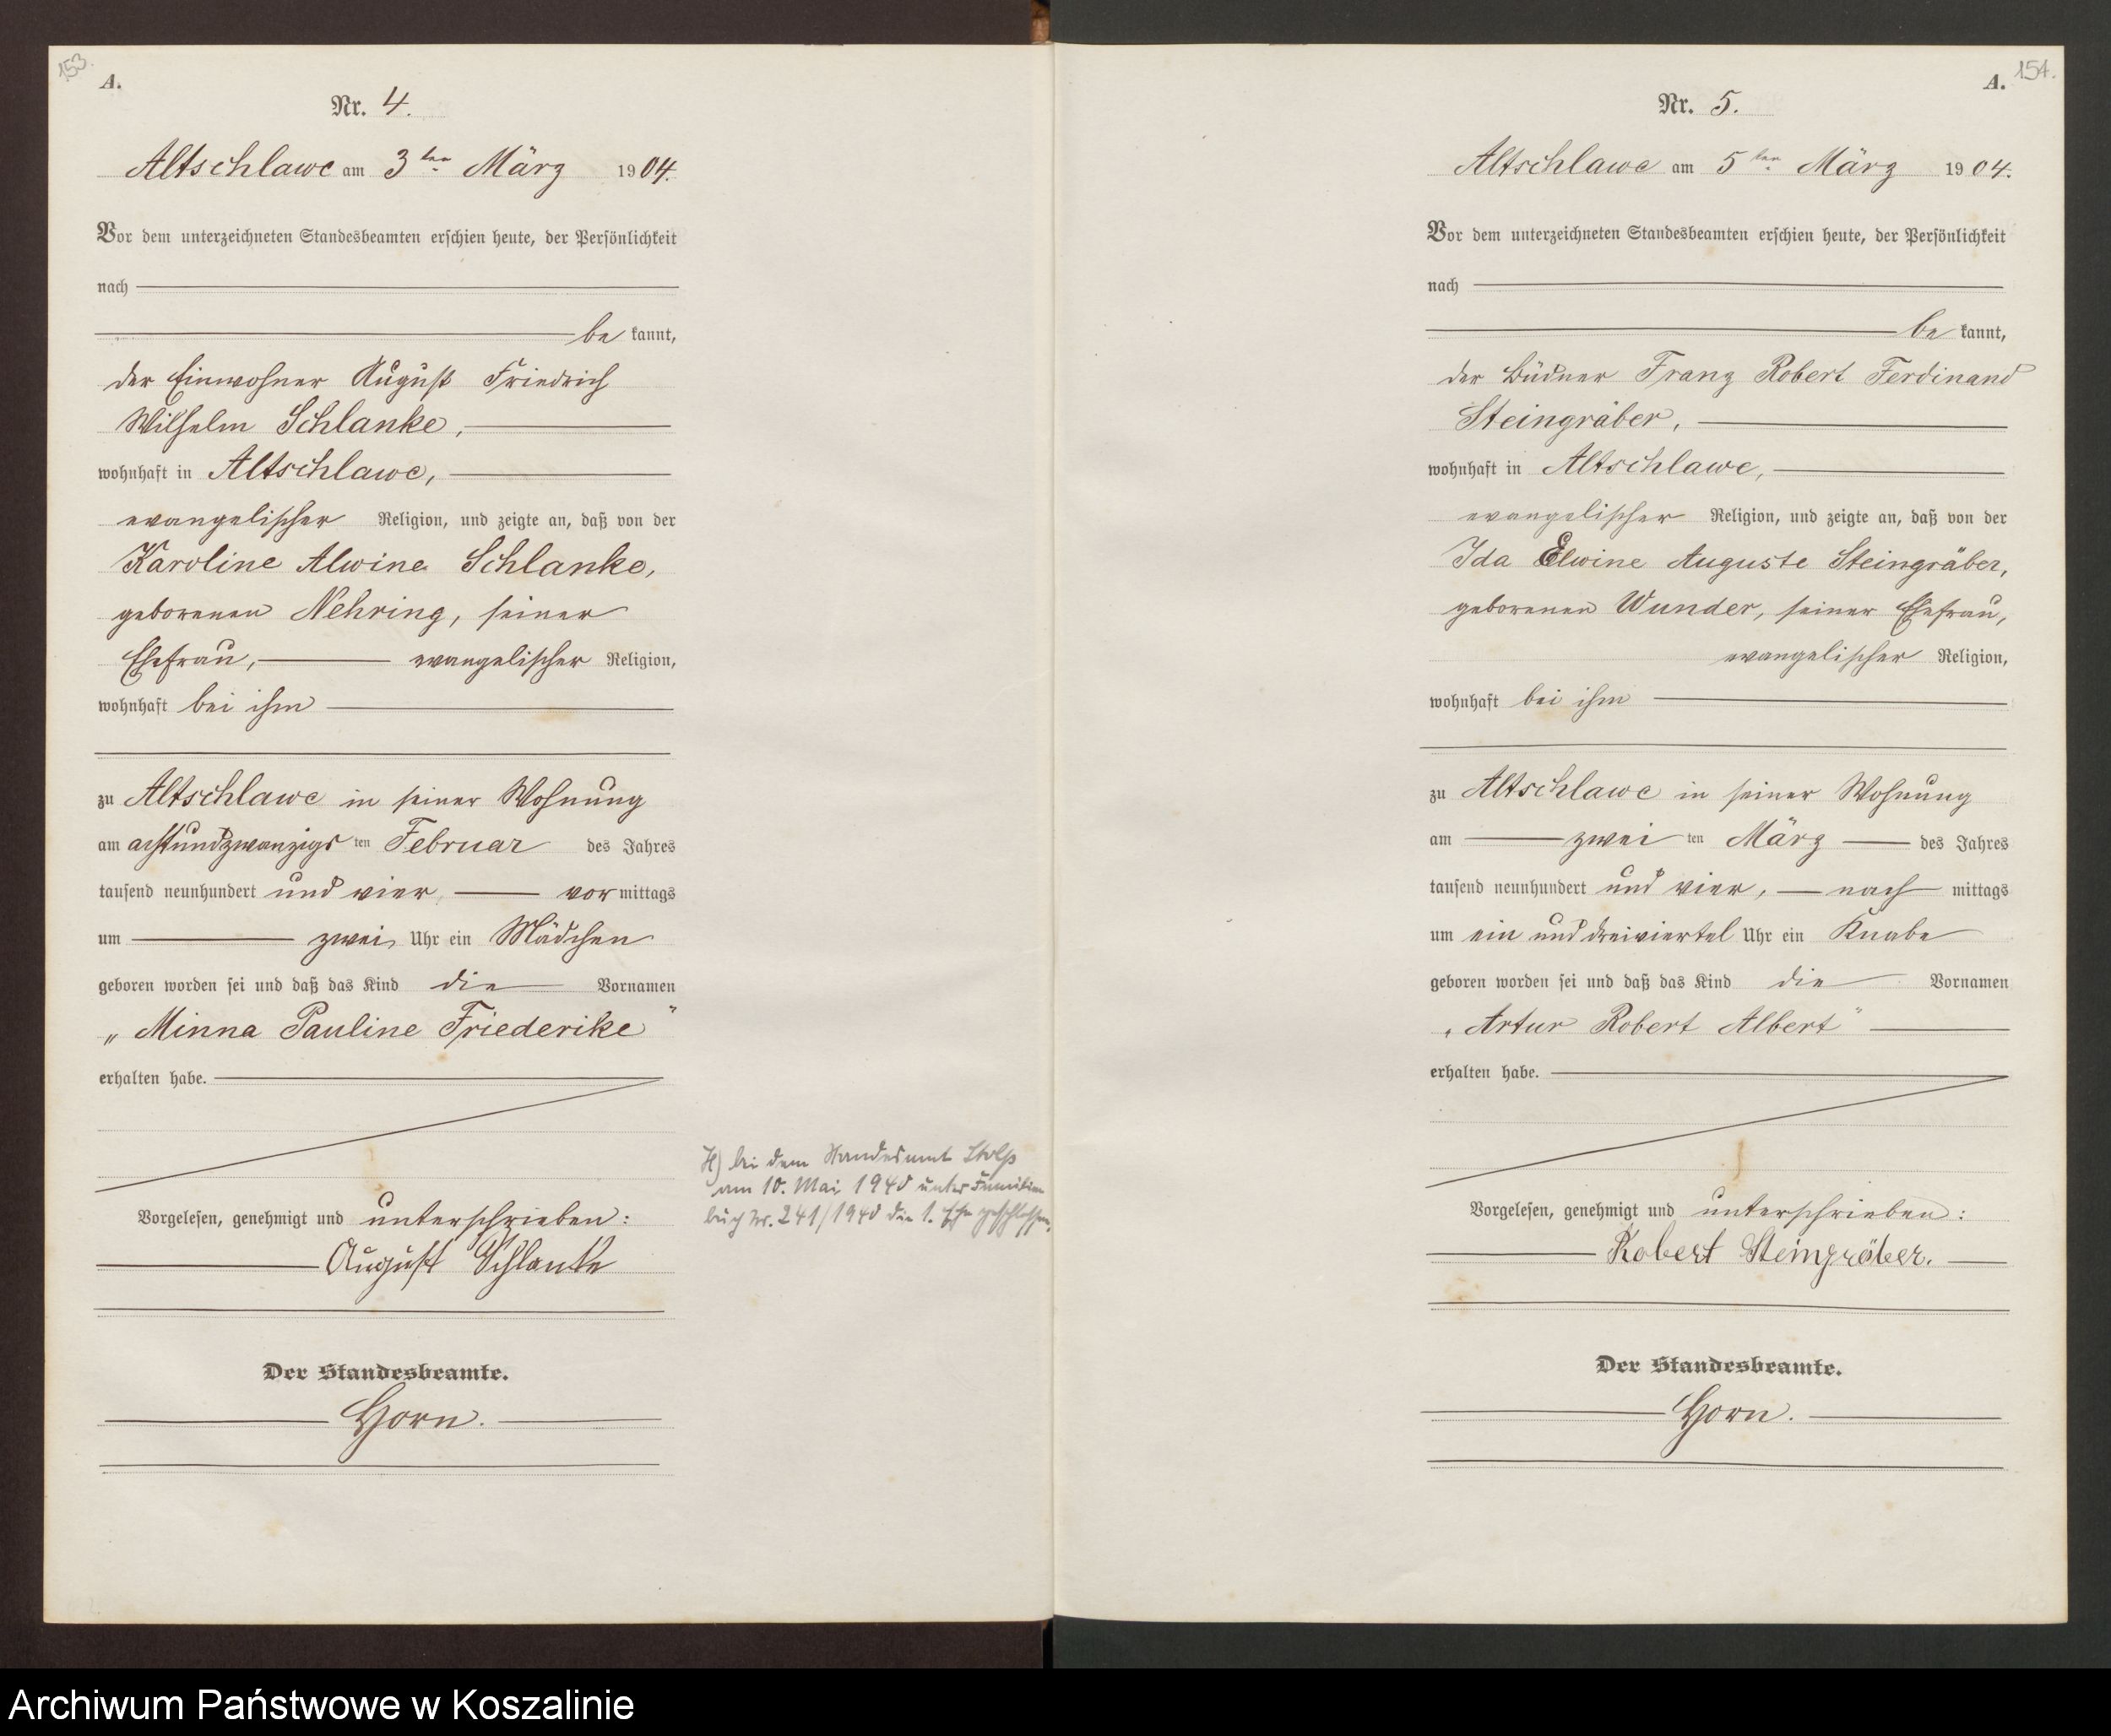 153.
A.
Nr. 4.
Altschlawe am 3ten März 1904.
Vor dem unterzeichneten Standesbeamten erschien heute, der Persönlichkeit
nach
be kannt,
der Einwohner August Friedrich
Wilhelm Schlanke,
wohnhaft in Altschlawe,
evangelischer Religion, und zeigte an, daß von der
Karoline Alwine Schlanke,
geborenen Nehring, seiner
Ehefrau, evangelischer Religion,
wohnhaft bei ihm
zu Altschlawe in seiner Wohnung
am achtundzwanzigsten Februar des Jahres
tausend neunhundert und vier, vormittags
um zwei Uhr ein Mädchen
geboren worden sei und daß das Kind die Vornamen
„Minna Pauline Friederike"
erhalten habe.
Vorgelesen, genehmigt und unterschrieben:
August Schlanke
Der Standesbeamte.
Horn.
H) bei dem Standesamt Stolp
am 10. Mai 1940 unter Familien
buch Nr. 241/1940 die 1. Ehe geschlossen.
154.
A.
Nr. 5.
Altschlawe am 5ten März 1904.
Vor dem unterzeichneten Standesbeamten erschien heute, der Persönlichkeit
nach
be kannt,
der Büdner Franz Robert Ferdinand
Steingräber,
wohnhaft in Altschlawe,
evangelischer Religion, und zeigte an, daß von der
Ida Elwine Auguste Steingräber,
geborenen Wunder, seiner Ehefrau,
evangelischer Religion,
wohnhaft bei ihm
zu Altschlawe in seiner Wohnung
am zweiten März des Jahres
tausend neunhundert und vier, nachmittags
um ein und dreiviertel Uhr ein Knabe
geboren worden sei und daß das Kind die Vornamen
„Artur Robert Albert"
erhalten habe.
Vorgelesen, genehmigt und unterschrieben:
Robert Steingräber.
Der Standesbeamte.
Horn.
Archiwum Państwowe w Koszalinie